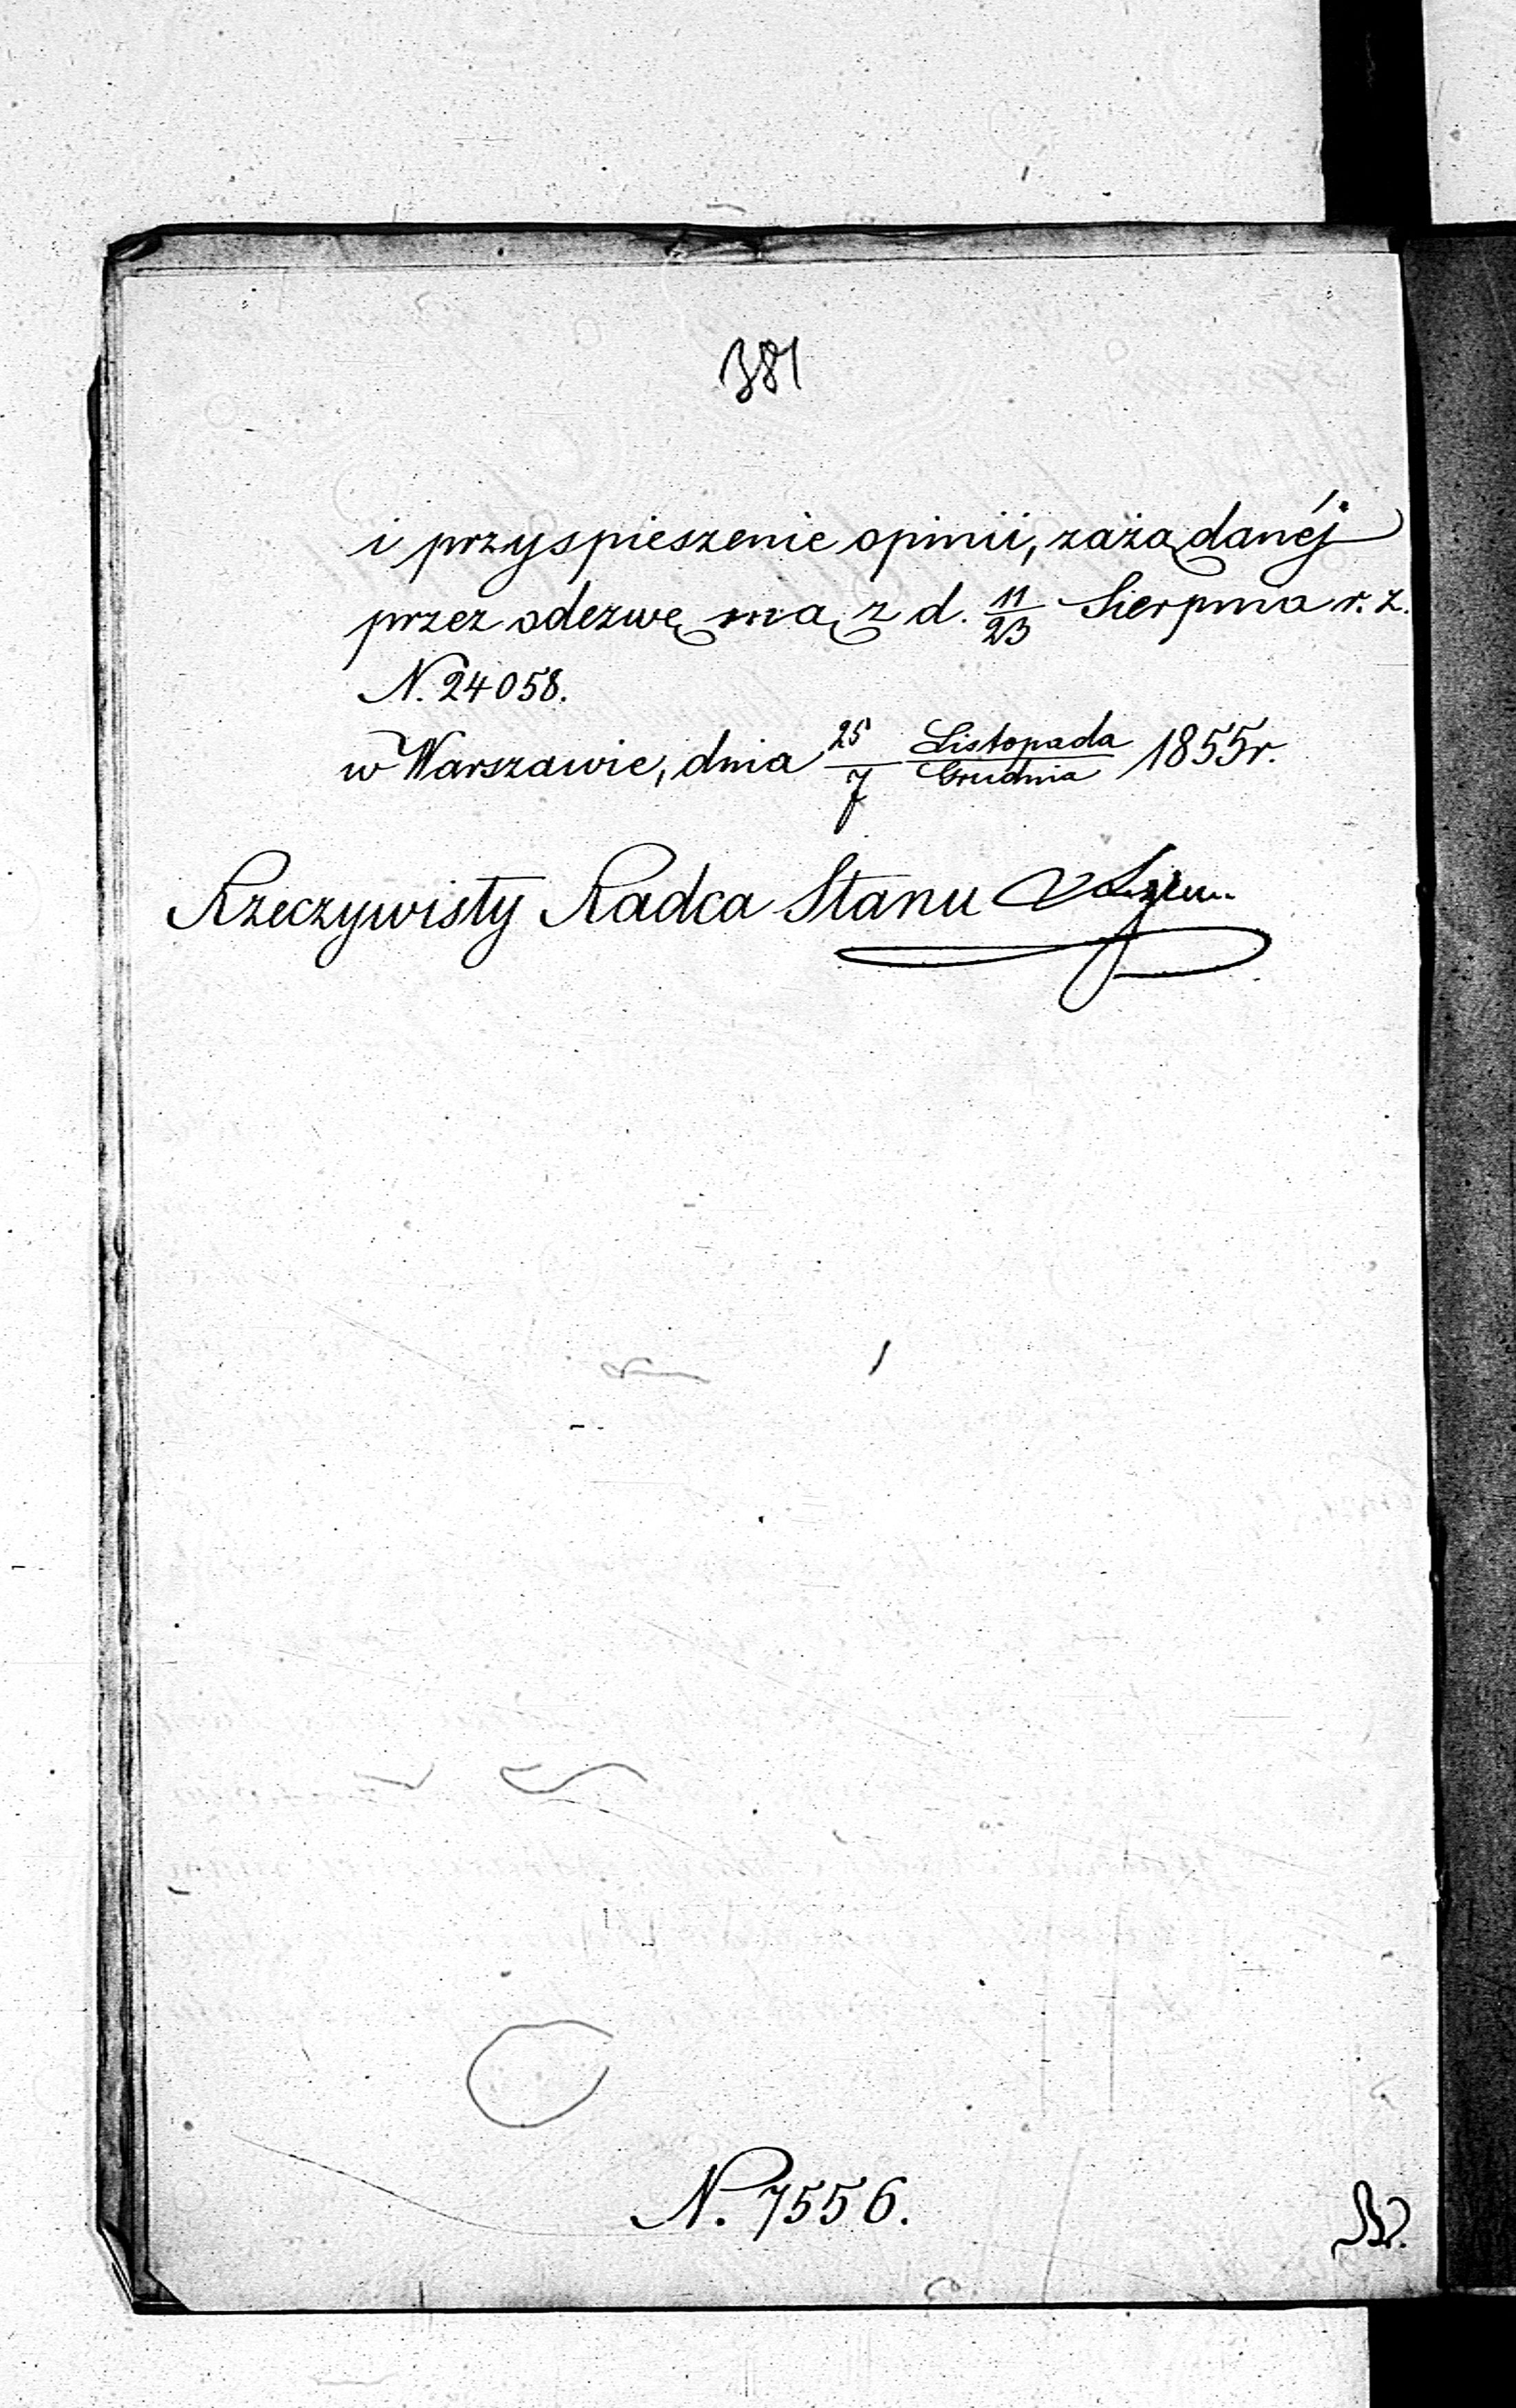 381
i przyspieszenie opinii, zażądanéj
przez odezwę mą z d. 11/23 Sierpnia r. z.
N. 24058.
w Warszawie, dnia 25/7 Listopada/Grudnia 1855 r.
Rzeczywisty Radca Stanu
N. 7556.